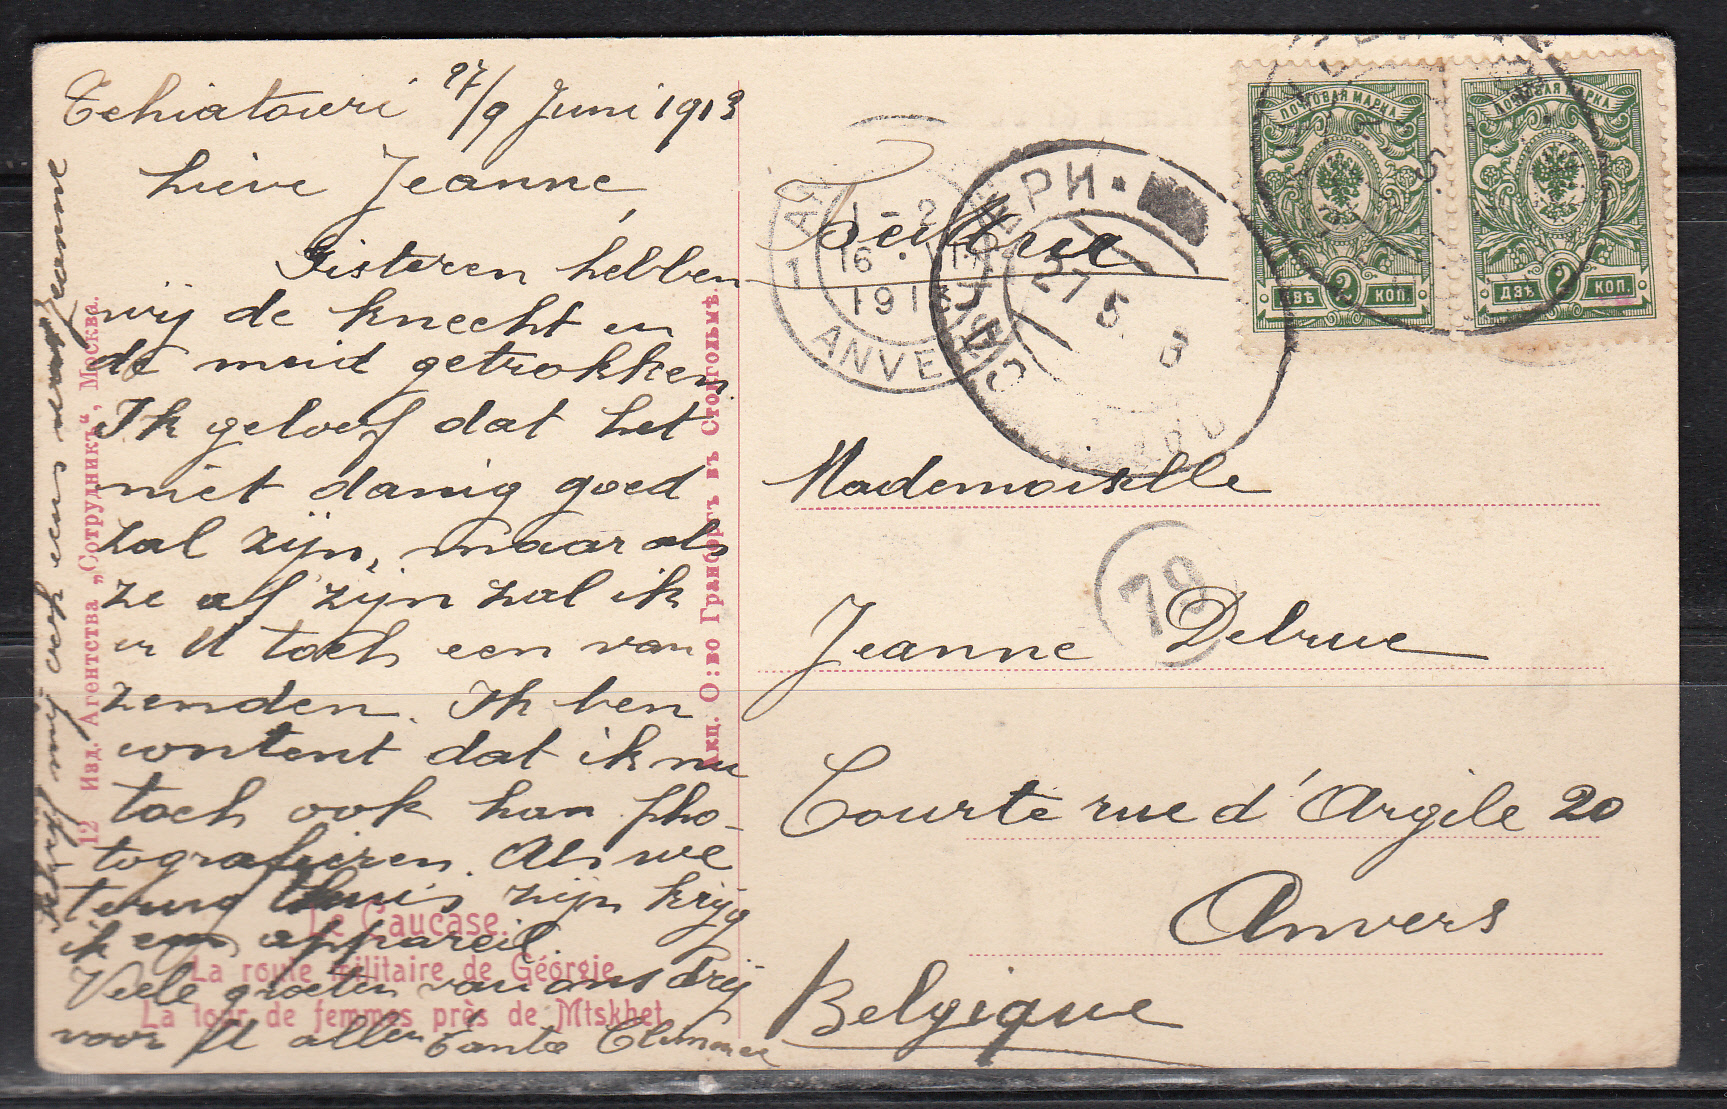 Tchiatouri 27/9 Juni 1913
Lieve Jeanne,
Gisteren hebben
wij de knecht en
de meid getrokken.
Ik geloof dat het
niet danig goed
zal zijn, maar als
ze af zijn zal ik
er U toch een van
zenden. Ik ben
content dat ik nu
toch ook kan pho-
tografieren. Als we
terug thuis zijn krijg
ik een appareil.
Veele groeten van ons drij
voor U allen Tante Clémence
schrijf mij ook eens
Jeanne
12 Изд. Агентства „Сотрудникъ“, Москва.
Акц. О:во Гранбергъ въ Стокгольмѣ.
Le Caucase.
La route militaire de Géorgie
La tour de femmes près de Mtskhet
1-2
16 VI
1913
1
ANVERS
27 5
ПОЧТОВАЯ МАРКА
ДВѢ 2 КОП.
ПОЧТОВАЯ МАРКА
ДВѢ 2 КОП.
Mademoiselle
79
Jeanne Delrue
Courte rue d'Argile 20
Anvers
Belgique